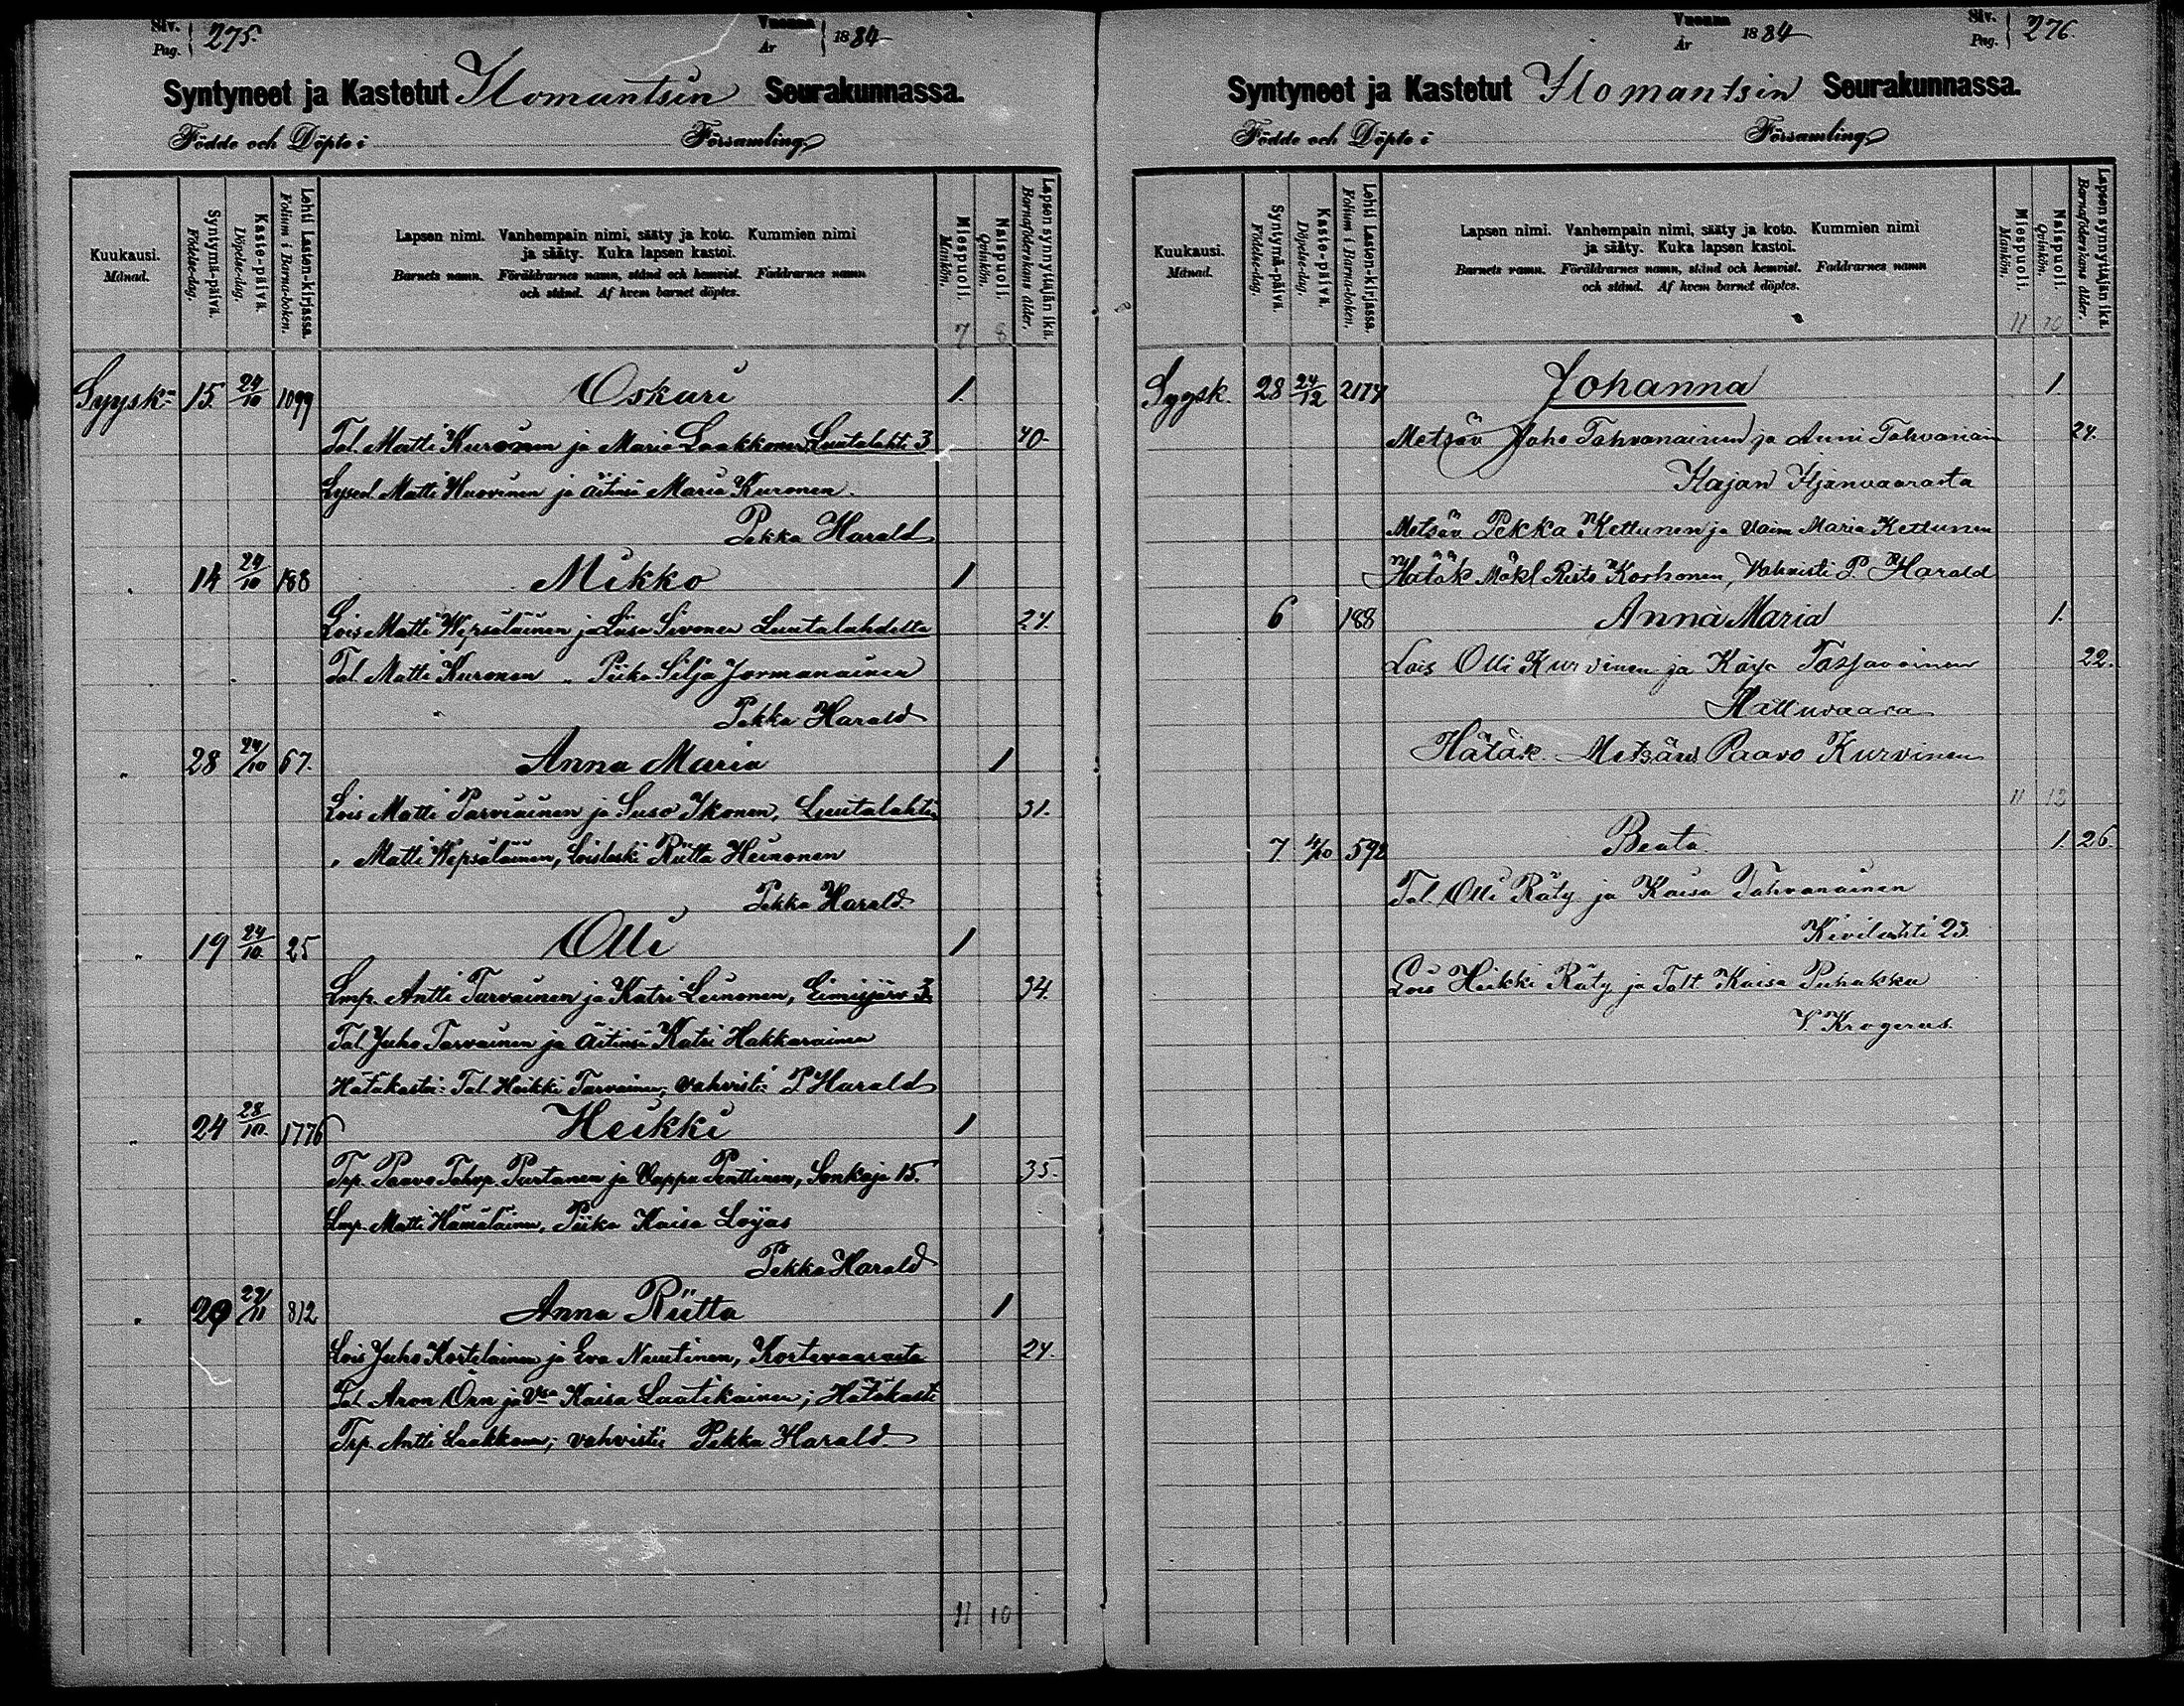 Siv. Pag. 275. Vuonna År 1884
Syntyneet ja Kastetut Ilomantsin Seurakunnassa.
Födde och Döpte i Församling
Kuukausi. Månad.
Syntymä-päivä. Födelse-dag.
Kaste-päivä. Döpelse-dag.
Lehti Lasten-kirjassa. Folium i Barna-boken.
Lapsen nimi. Vanhempain nimi, sääty ja koto. Kummien nimi
ja sääty. Kuka lapsen kastoi.
Barnets namn. Föräldrarnes namn, stånd och hemvist. Faddrarnes namn
och stånd. Af hvem barnet döptes.
Miespuoli. Mankön.
Naispuoli. Qvinkön.
Lapsen synnyttäjän ikä. Barnaföderskans ålder.
7 8
Syysk. 15. 24/10 1099 Oskari 1.
Tal. Matti Kuronen ja Maria Laakkonen, Luutalahti 3 40.
Matti Huovinen ja äitinsä Maria Kuronen.
Pekka Harald
" 14 24/10 188 Mikko 1
Lois Matti Wepsäläinen ja Liisa Sivonen Luutalahdelta 27.
Tal Matti Kuronen " Piika Silja Jormanainen
Pekka Harald
" 28 24/10 67. Anna Maria 1
Lois Matti Parviainen ja Suso Ikonen, Luutalahti 31.
" Matti Wepsäläinen, Loisleski Riitta Heinonen
Pekka Harald.
" 19 24/10. 25 Olli 1
Lmp. Antti Tarvainen ja Katri Leinonen, Eimisjärv 3. 34.
Tal. Juho Tarvainen ja äitinsä Katri Hakkarainen
Hätäkastoi: Tal. Heikki Tarvainen, vahvisti: P Harald
" 24 28/10. 1776 Heikki 1
Trp. Paavo Tahvp. Purtanen ja Vappu Penttinen, Sonkaja 15. 35.
Lmp. Matti Hämäläinen, Piika Kaisa
Pekka Harald
" 29 /11 812 Anna Riitta 1
Lois Juho Kortelainen ja Eva Nuutinen, Kortevaarasta 24.
Tal. Aron Örn ja Vsa Kaisa Laatikainen; Hätäkasti
Trp. Antti Laakkonen; vahvisti: Pekka Harald.
11 10
Vuonna År 1884 Siv. Pag. 276.
Syntyneet ja Kastetut Ilomantsin Seurakunnassa.
Födde och Döpte i Församling
Kuukausi. Månad.
Syntymä-päivä. Födelse-dag.
Kaste-päivä. Döpelse-dag.
Lehti Lasten-kirjassa. Folium i Barna-boken.
Lapsen nimi. Vanhempain nimi, sääty ja koto. Kummien nimi
ja sääty. Kuka lapsen kastoi.
Barnets namn. Föräldrarnes namn, stånd och hemvist. Faddrarnes namn
och stånd. Af hvem barnet döptes.
Miespuoli. Mankön.
Naispuoli. Qvinkön.
Lapsen synnyttäjän ikä. Barnaföderskans ålder.
11 10
Syysk. 28 24/12 2174 Johanna 1.
Metsäv Juho Tahvanainen ja Anni Tahvanain 24.
Metsäv Pekka Kettunen ja Vaim Maria Kettunen
Hätäk Mökl Risto Korhonen, Vahvisti P. Harald
6 188 Anna Maria 1.
Lois Olli Kurvinen ja Kaija 22.
Hattuvaara
Hätäk. Metsäv Paavo Kurvinen
11 12
7 4/10 592 Beata 1. 26.
Tal. Olli Räty ja Kaisa Tahvanainen
Kivilahti 23.
Lois Heikki Räty ja Talt Kaisa Puhakka
V. Krogerus.